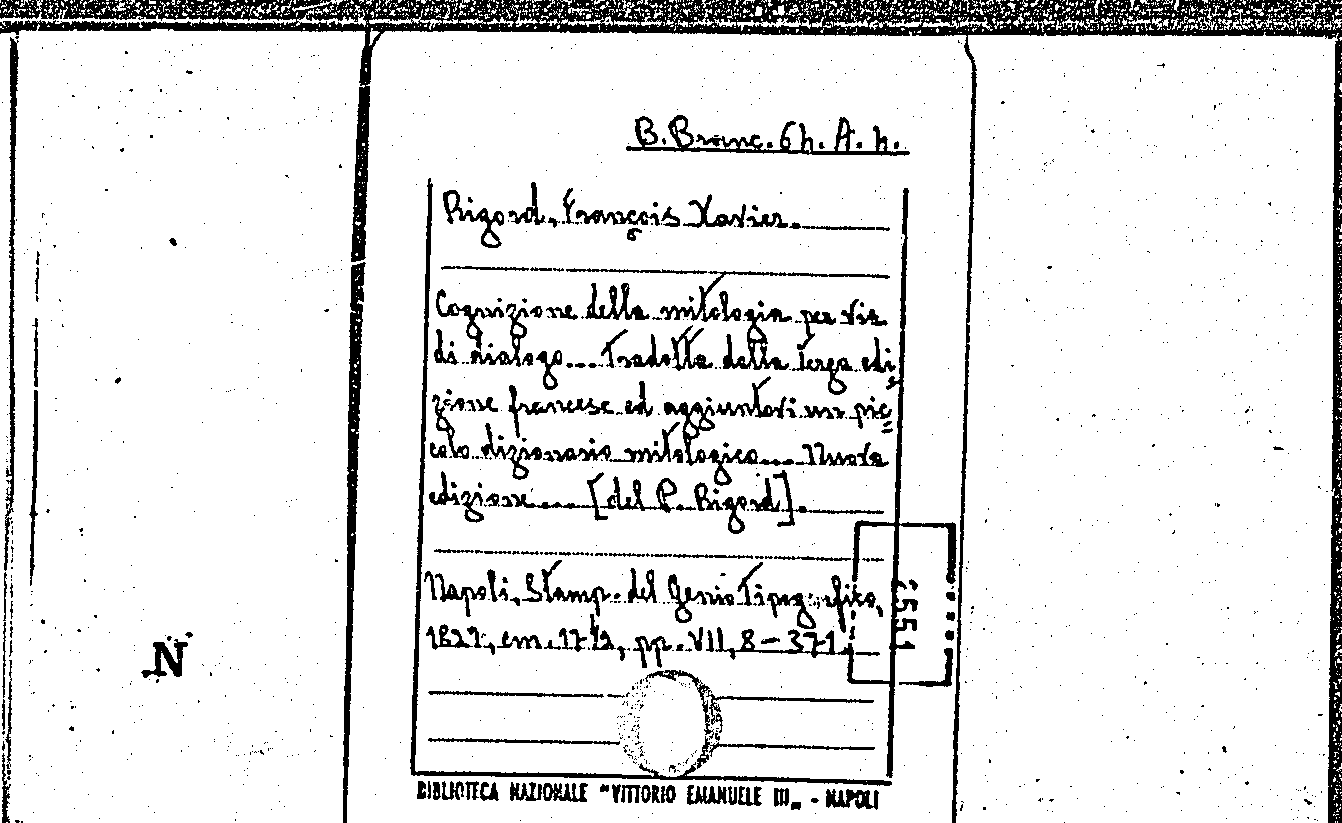 B. Branc. 6h. A. h.
Rigord, François Xavier.
Cognizione della mitologia per via
di dialogo... Tradotta dalla terza edi
zione francese ed aggiuntovi un pic
colo dizionario mitologico... Nuova
edizione... [del P. Rigord].
Napoli, Stamp. del Genio Tipografico,
1827, cm. 17½, pp. VII, 8-371.
N
BIBLIOTECA NAZIONALE "VITTORIO EMANUELE III" - NAPOLI